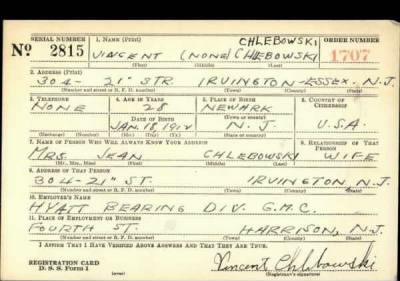 SERIAL NUMBER 1. NAME (Print) CHLEBOWSKI ORDER NUMBER
No 2815 VINCENT (NONE) CHLEBOWSKI 1707
(First) (Middle) (Last)
2. ADDRESS (Print)
304 - 21st STR. IRVINGTON - ESSEX. N.J.
(Number and street or R. F. D. number) (Town) (County) (State)
3. TELEPHONE 4. AGE IN YEARS 5. PLACE OF BIRTH 6. COUNTRY OF CITIZENSHIP
NONE 28 NEWARK
DATE OF BIRTH (Town or county)
JAN. 18, 1912 N. J. U.S.A.
(Exchange) (Number) (Mo.) (Day) (Yr.) (State or country)
7. NAME OF PERSON WHO WILL ALWAYS KNOW YOUR ADDRESS 8. RELATIONSHIP OF THAT PERSON
MRS. JEAN CHLEBOWSKI WIFE
(Mr., Mrs., Miss) (First) (Middle) (Last)
9. ADDRESS OF THAT PERSON
304 - 21st ST. IRVINGTON N.J.
(Number and street or R. F. D. number) (Town) (County) (State)
10. EMPLOYER'S NAME
HYATT BEARING DIV. G.M.C.
11. PLACE OF EMPLOYMENT OR BUSINESS
FOURTH ST. HARRISON, N.J.
(Number and street or R. F. D. number) (Town) (County) (State)
I AFFIRM THAT I HAVE VERIFIED ABOVE ANSWERS AND THAT THEY ARE TRUE.
REGISTRATION CARD Vincent Chlebowski
D. S. S. Form 1 (Registrant's signature)